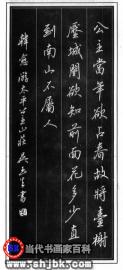 公主當年欲占春故將臺榭
壓城闉欲知前面花多少直
到南山不屬人
韓愈游太平公主山莊
当代书画家百科
www.shjbk.com